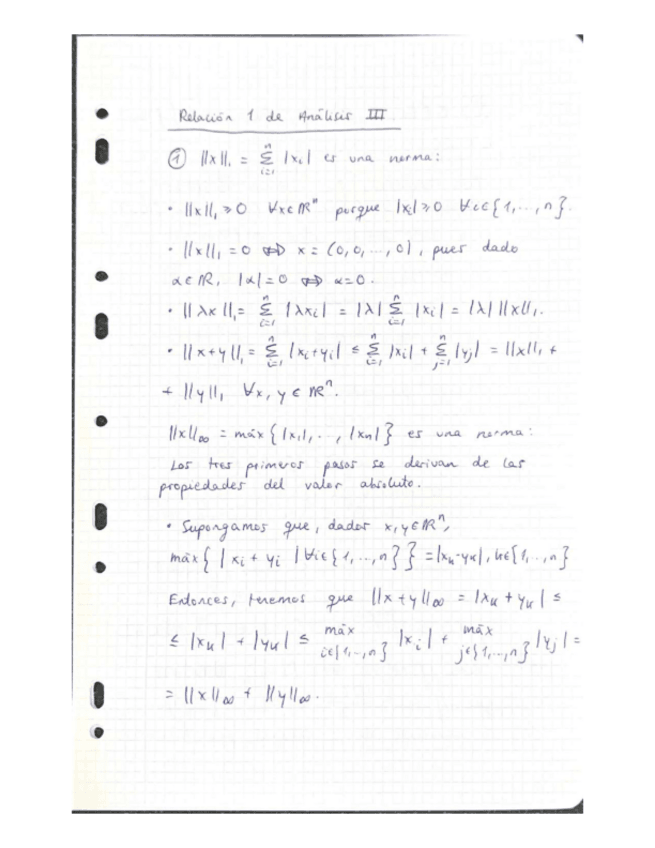 Relación 1 de Análisis III
① ||x||₁ = ∑ᵢ₌₁ⁿ |xᵢ| es una norma:
• ||x||₁ ⩾ 0 ∀x∈ℝⁿ porque |xᵢ| ⩾ 0 ∀i∈{1,...,n}.
• ||x||₁ = 0 ⇔ x = (0,0,...,0), pues dado
α∈ℝ, |α|=0 ⇔ α=0.
• ||λx||₁ = ∑ᵢ₌₁ⁿ |λxᵢ| = |λ| ∑ᵢ₌₁ⁿ |xᵢ| = |λ| ||x||₁.
• ||x+y||₁ = ∑ᵢ₌₁ⁿ |xᵢ+yᵢ| ≤ ∑ᵢ₌₁ⁿ |xᵢ| + ∑ⱼ₌₁ⁿ |yⱼ| = ||x||₁ +
+ ||y||₁ ∀x, y ∈ ℝⁿ.
||x||∞ = máx{|x₁|, ..., |xₙ|} es una norma:
Los tres primeros pasos se derivan de las
propiedades del valor absoluto.
• Supongamos que, dados x,y∈ℝⁿ,
máx{|xᵢ + yᵢ | ∀i∈{1,...,n}} = |xₖ-yₖ|, k∈{1,..,n}
Entonces, tenemos que ||x+y||∞ = |xₖ + yₖ| ≤
≤ |xₖ| + |yₖ| ≤ máx i∈{1,..,n} |xᵢ| + máx j∈{1,..,n} |yⱼ| =
= ||x||∞ + ||y||∞.